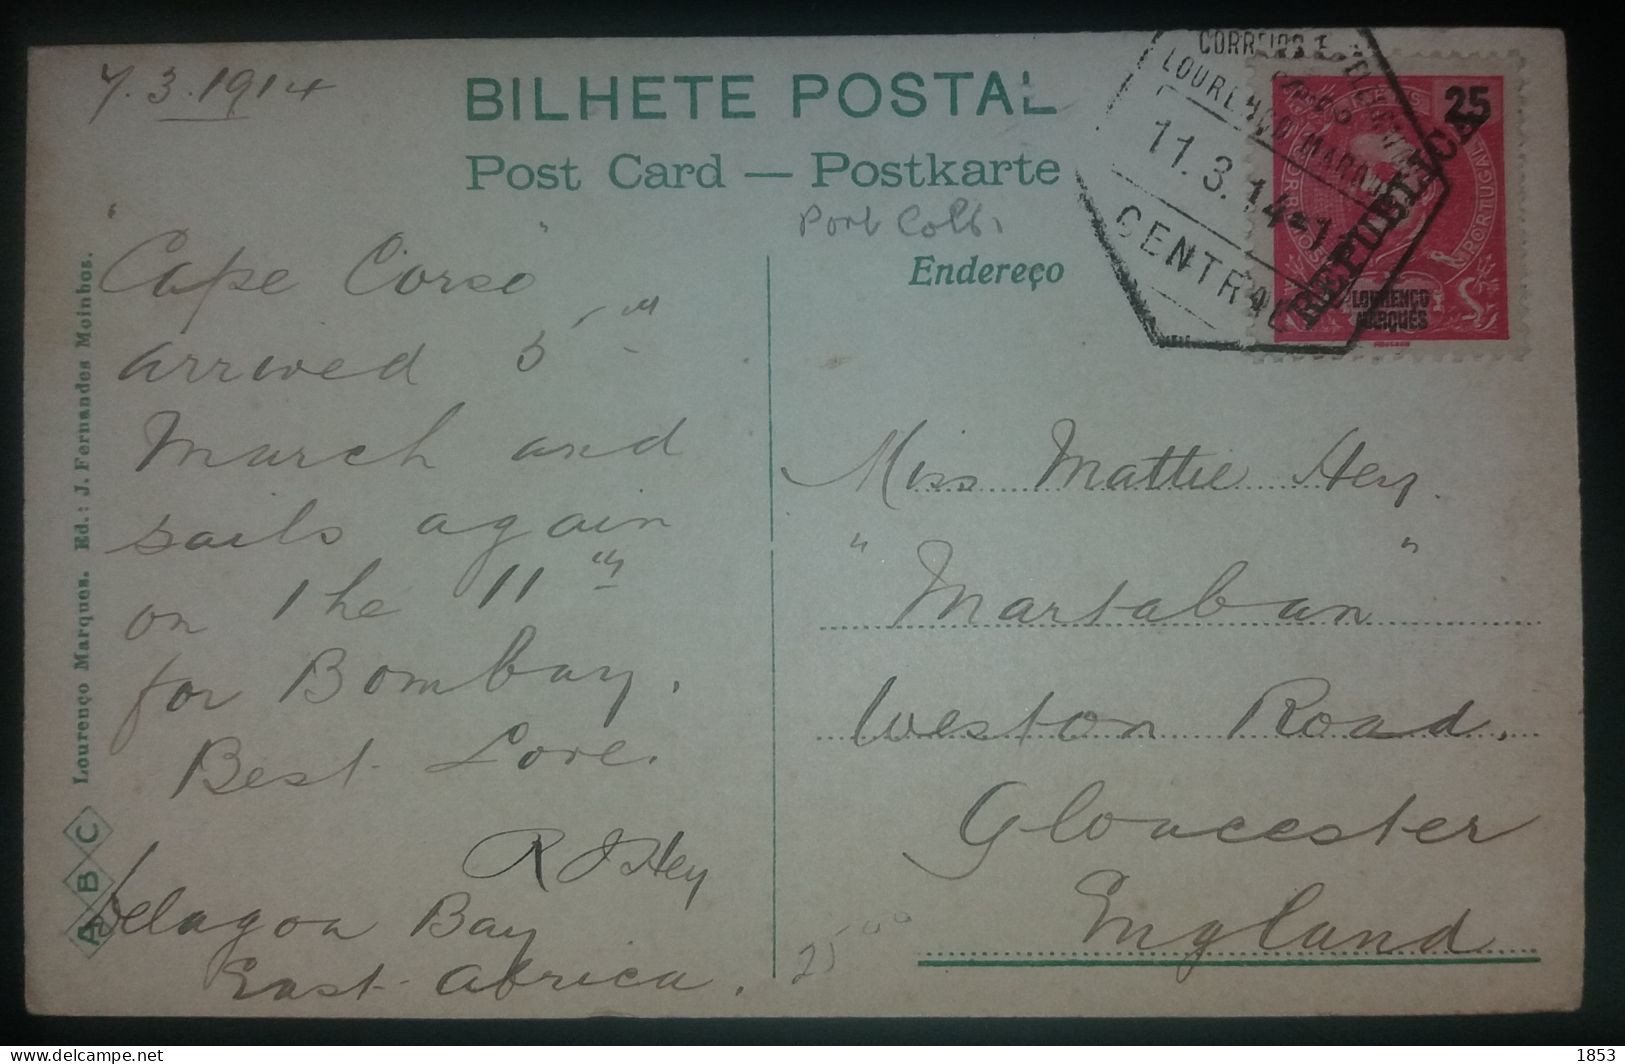 7.3.1914
BILHETE POSTAL
Post Card — Postkarte
Port Colb.
Endereço
"Cape Corso"
arrived 5th
March and
sails again
on the 11th
for Bombay.
Best Love.
R J Hey
Delagoa Bay
East Africa.
Miss Mattie Hey.
"Martaban"
Weston Road.
Gloucester
England
25 00
A B C Lourenço Marques. Ed.: J. Fernandes Moinhos.
CORREIOS E
LOURENÇO MARQUES
11.3.14
CENTRAL
25
PORTUGAL
REPUBLICA
LOURENÇO
MARQUES
delcampe.net
1853